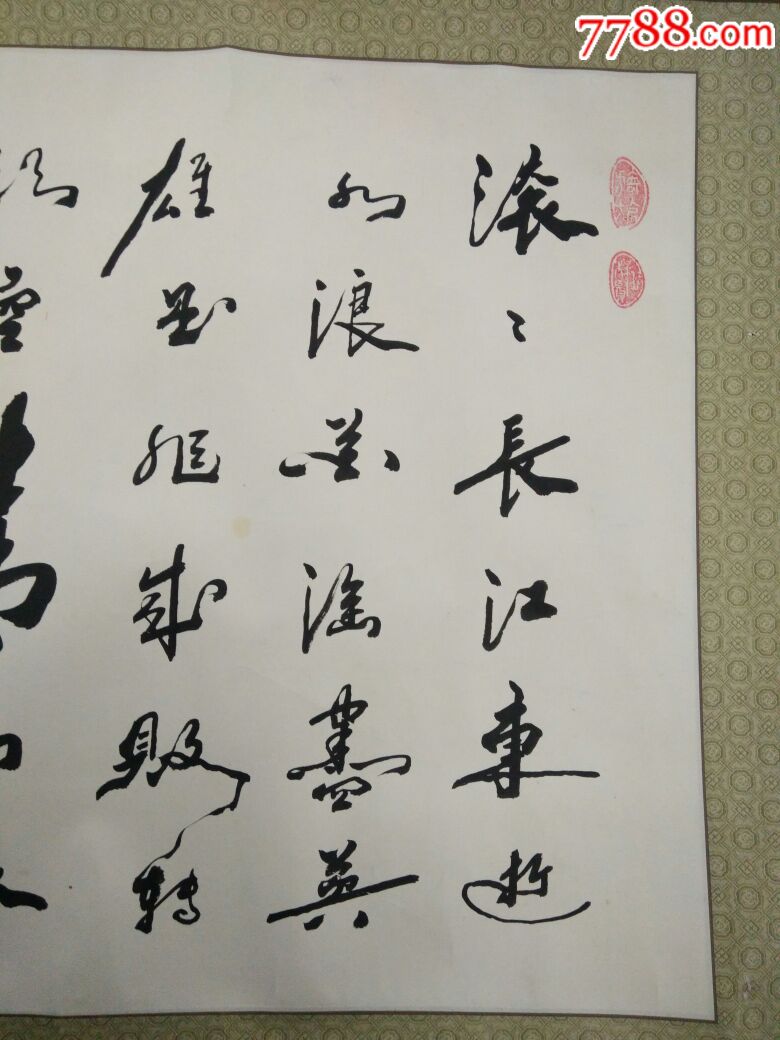 7788.com
滚〻長江東逝
水浪花淘盡英
雄是非成敗轉
頭空